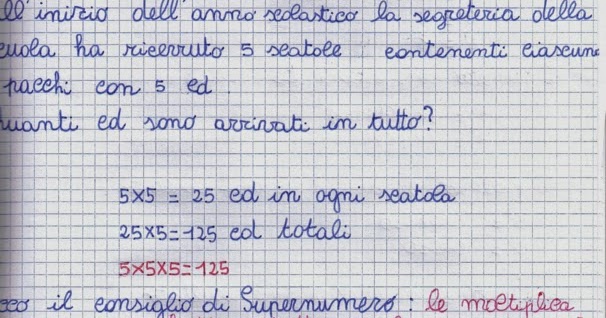 ll'inizio dell'anno scolastico la segreteria della
cuola ha ricevuto 5 scatole contenenti ciascuna
pacchi con 5 cd.
uanti cd sono arrivati in tutto?
5×5 = 25 cd in ogni scatola
25×5=125 cd totali
5×5×5=125
cco il consiglio di Supernumero: le moltiplica